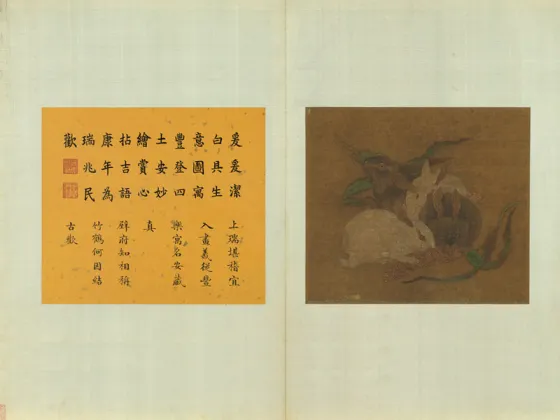 爰爰潔
白具生
意圖寓
豐登四
土安妙
繪賞心
拈吉語
康年為
瑞兆民
歡
上瑞堪稽宜
入畫義從豐
樂寫名安藏
真
府知相稱
竹鶴何因結
古歡